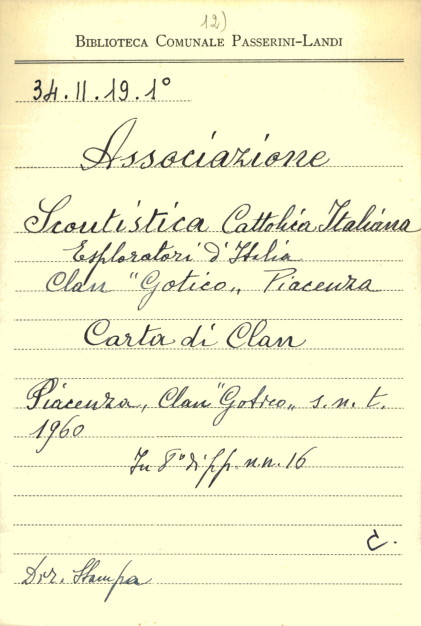 12)
BIBLIOTECA COMUNALE PASSERINI-LANDI
34.II.19.1°
Associazione
Scoutistica Cattolica Italiana
Esploratori d'Italia
Clan "Gotico„ Piacenza
Carta di Clan
Piacenza, Clan "Gotico„ s.n.t.
1960
In 8° di pp. n.n. 16
C.
Dir. Stampa